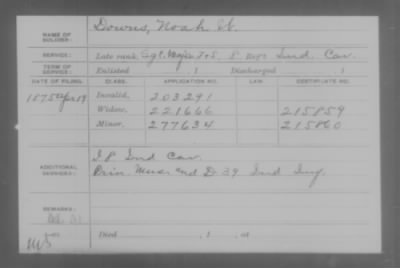 NAME OF SOLDIER: Downs, Noah W.
SERVICE: Late rank, Sgt. Major F&S, 8 Regt Ind. Cav.
TERM OF SERVICE: Enlisted , 1 Discharged , 1
DATE OF FILING. CLASS. APPLICATION NO. LAW. CERTIFICATE NO.
1875 Apr 19 Invalid, 203291
Widow, 221666 215859
Minor, 277634 215860
ADDITIONAL SERVICES: I. 8 Ind Cav.
Prin Mus. and D 39 Ind Inf.
REMARKS:
Died , 1 , at